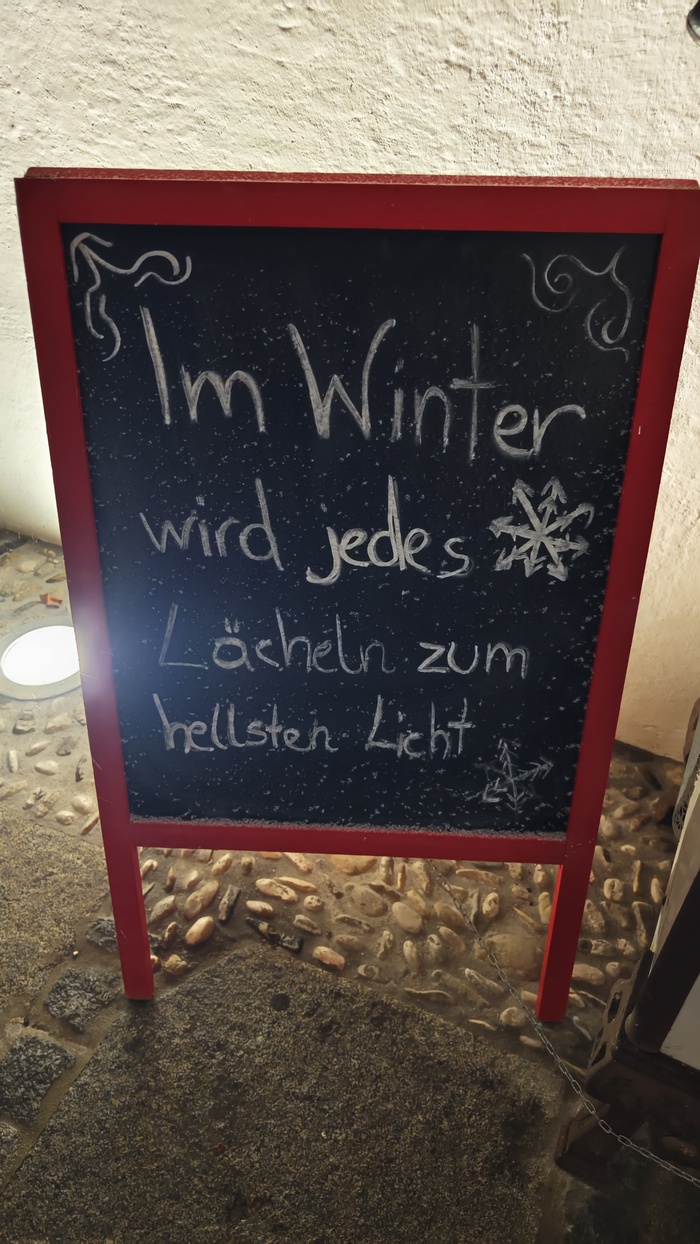 Im Winter
wird jedes
Lächeln zum
hellsten Licht